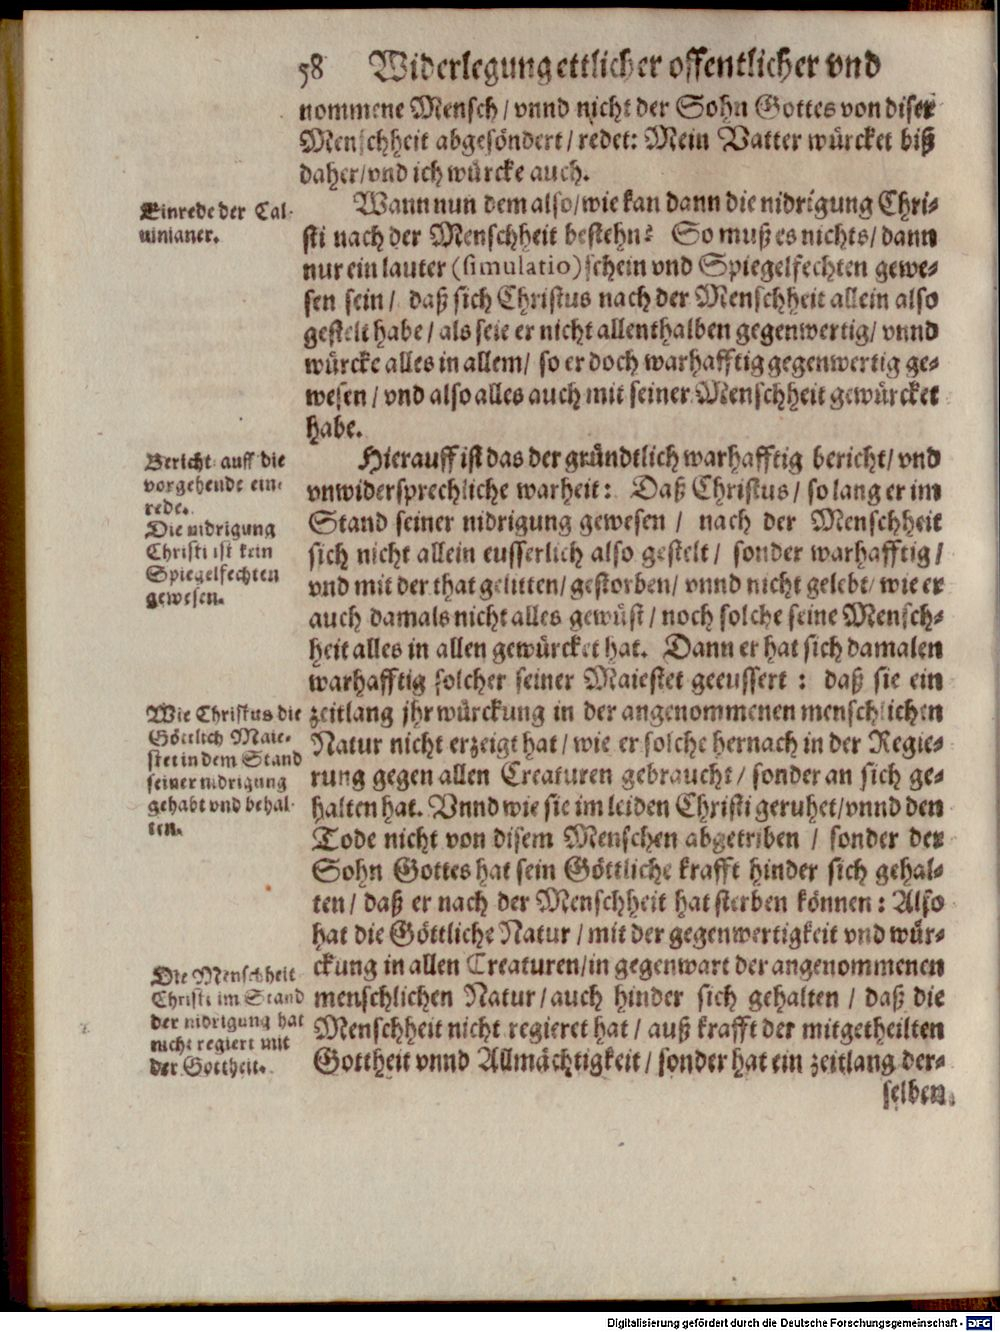 58 Widerlegung ettlicher offentlicher vnd
nommene Mensch / vnnd nicht der Sohn Gottes von diser
Menschheit abgesöndert / redet: Mein Vatter würcket biß
daher / vnd ich würcke auch.
Einrede der Cal-
uinianer.
Wann nun dem also / wie kan dann die nidrigung Chri-
sti nach der Menschheit bestehn? So muß es nichts / dann
nur ein lauter (simulatio) schein vnd Spiegelfechten gewe-
sen sein / daß sich Christus nach der Menschheit allein also
gestelt habe / als seie er nicht allenthalben gegenwertig / vnnd
würcke alles in allem / so er doch warhafftig gegenwertig ge-
wesen / vnd also alles auch mit seiner Menschheit gewürcket
habe.
Bericht auff die
vorgehende ein-
rede.
Die nidrigung
Christi ist kein
Spiegelfechten
gewesen.
Hierauff ist das der gründtlich warhafftig bericht / vnd
vnwidersprechliche warheit: Daß Christus / so lang er im
Stand seiner nidrigung gewesen / nach der Menschheit
sich nicht allein eusserlich also gestelt / sonder warhafftig /
vnd mit der that gelitten / gestorben / vnnd nicht gelebt / wie er
auch damals nicht alles gewüst / noch solche seine Mensch-
heit alles in allen gewürcket hat. Dann er hat sich damalen
warhafftig solcher seiner Maiestet geeussert : daß sie ein
Wie Christus die
Göttlich Maie-
stet in dem Stand
seiner nidrigung
gehabt vnd behal-
ten.
zeitlang jhr würckung in der angenommenen menschlichen
Natur nicht erzeigt hat / wie er solche hernach in der Regie-
rung gegen allen Creaturen gebraucht / sonder an sich ge-
halten hat. Vnnd wie sie im leiden Christi geruhet / vnnd den
Tode nicht von disem Menschen abgetriben / sonder der
Sohn Gottes hat sein Göttliche krafft hinder sich gehal-
ten / daß er nach der Menschheit hat sterben können : Also
hat die Göttliche Natur / mit der gegenwertigkeit vnd wür-
ckung in allen Creaturen / in gegenwart der angenommenen
Die Menschheit
Christi im Stand
der nidrigung hat
nicht regiert mit
der Gottheit.
menschlichen Natur / auch hinder sich gehalten / daß die
Menschheit nicht regieret hat / auß krafft der mitgetheilten
Gottheit vnnd Allmächtigkeit / sonder hat ein zeitlang der-
selben.
Digitalisierung gefördert durch die Deutsche Forschungsgemeinschaft - DFG